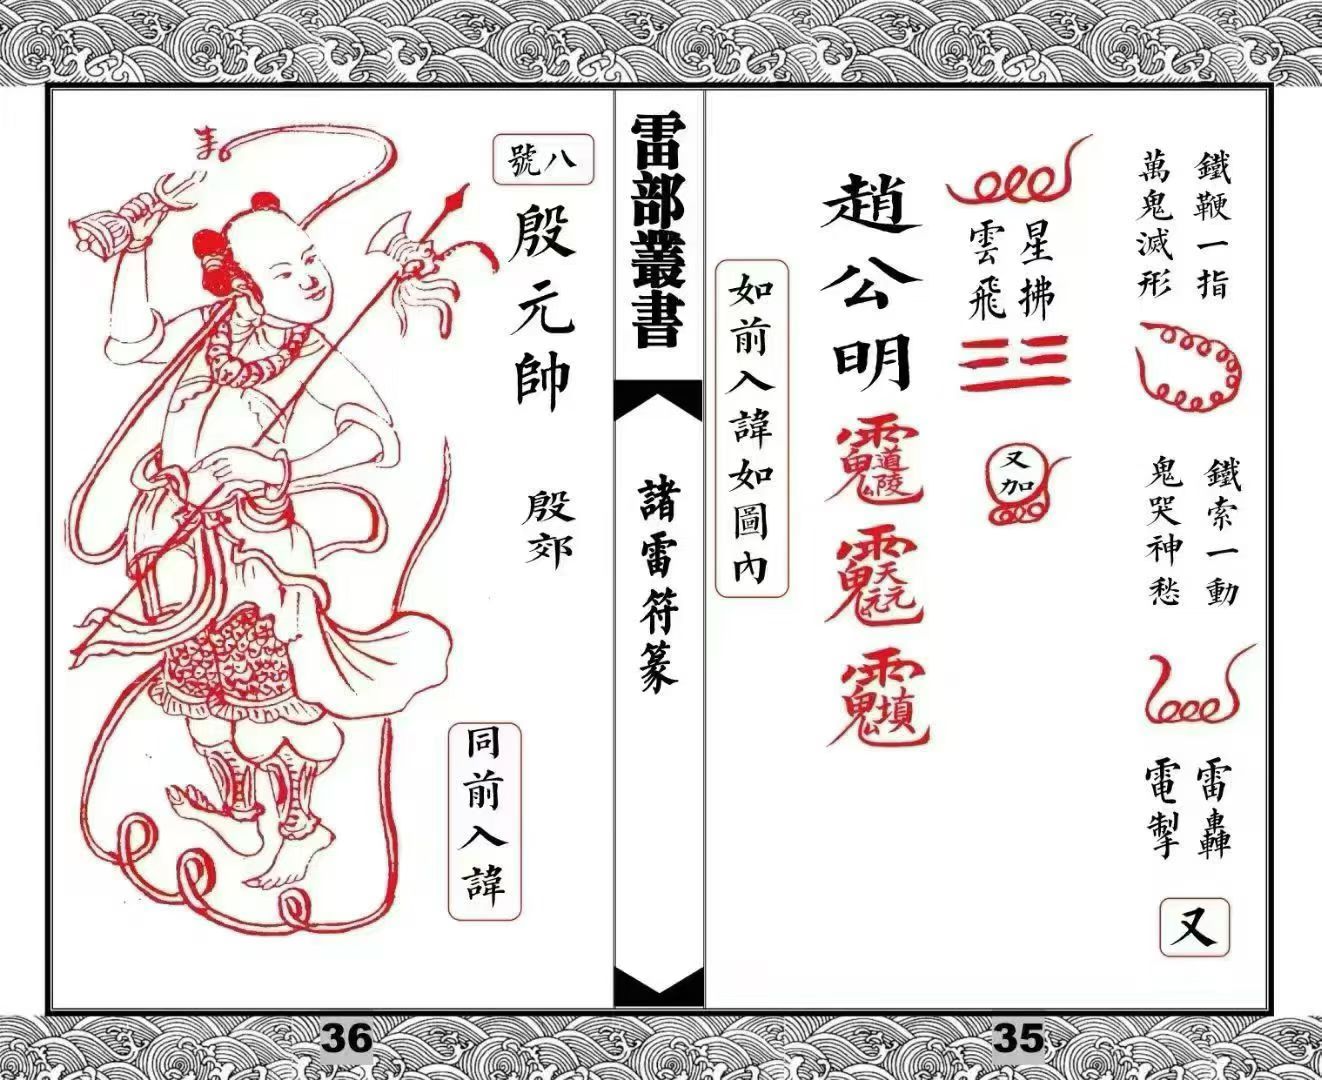 鐵鞭一指
萬鬼滅形
鐵索一動
鬼哭神愁
雷轟
電掣
又
星拂
雲飛
又加
趙公明
道陵
天元元
填
如前入諱如圖內
35
雷部叢書
諸雷符篆
八號
殷元帥
殷郊
同前入諱
36